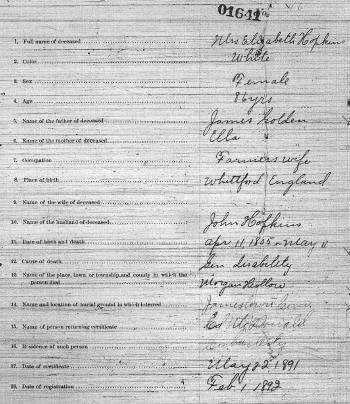 01641
1. Full name of deceased Mrs Elizabeth Hopkins
2. Color White
3. Sex Female
4. Age 86 yrs
5. Name of the father of deceased James Holden
6. Name of the mother of deceased Ella
7. Occupation Farmers wife
8. Place of birth Whitford England
9. Name of the wife of deceased
10. Name of the husband of deceased John Hopkins
11. Date of birth and death apr 11 1805 May 11
12. Cause of death Gen disability
13. Name of the place, town or township, and county in which the
person died Morgan Hollow
14. Name and location of burial ground in which interred Jamestown
15. Name of person returning certificate
16. Residence of such person
17. Date of certificate May 22 1891
18. Date of registration Feb 1, 1892